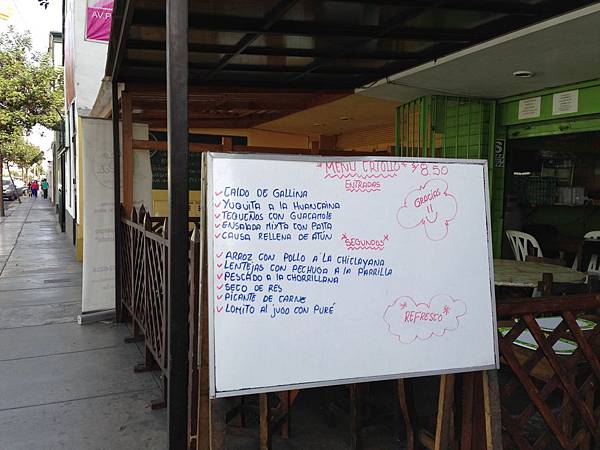 AV.P
* MENÚ CRIOLLO * S/ 8.50
ENTRADAS
CALDO DE GALLINA
YUQUITA A LA HUANCAINA
TEQUEÑOS CON GUACAMOLE
ENSALADA MIXTA CON PALTA
CAUSA RELLENA DE ATÚN
GRACIAS
!!
* SEGUNDOS *
ARROZ CON POLLO A LA CHICLAYANA
LENTEJAS CON PECHUGA A LA PARRILLA
PESCADO A LA CHORRILLANA
SECO DE RES
PICANTE DE CARNE
LOMITO AL JUGO CON PURÉ
* REFRESCO *
S